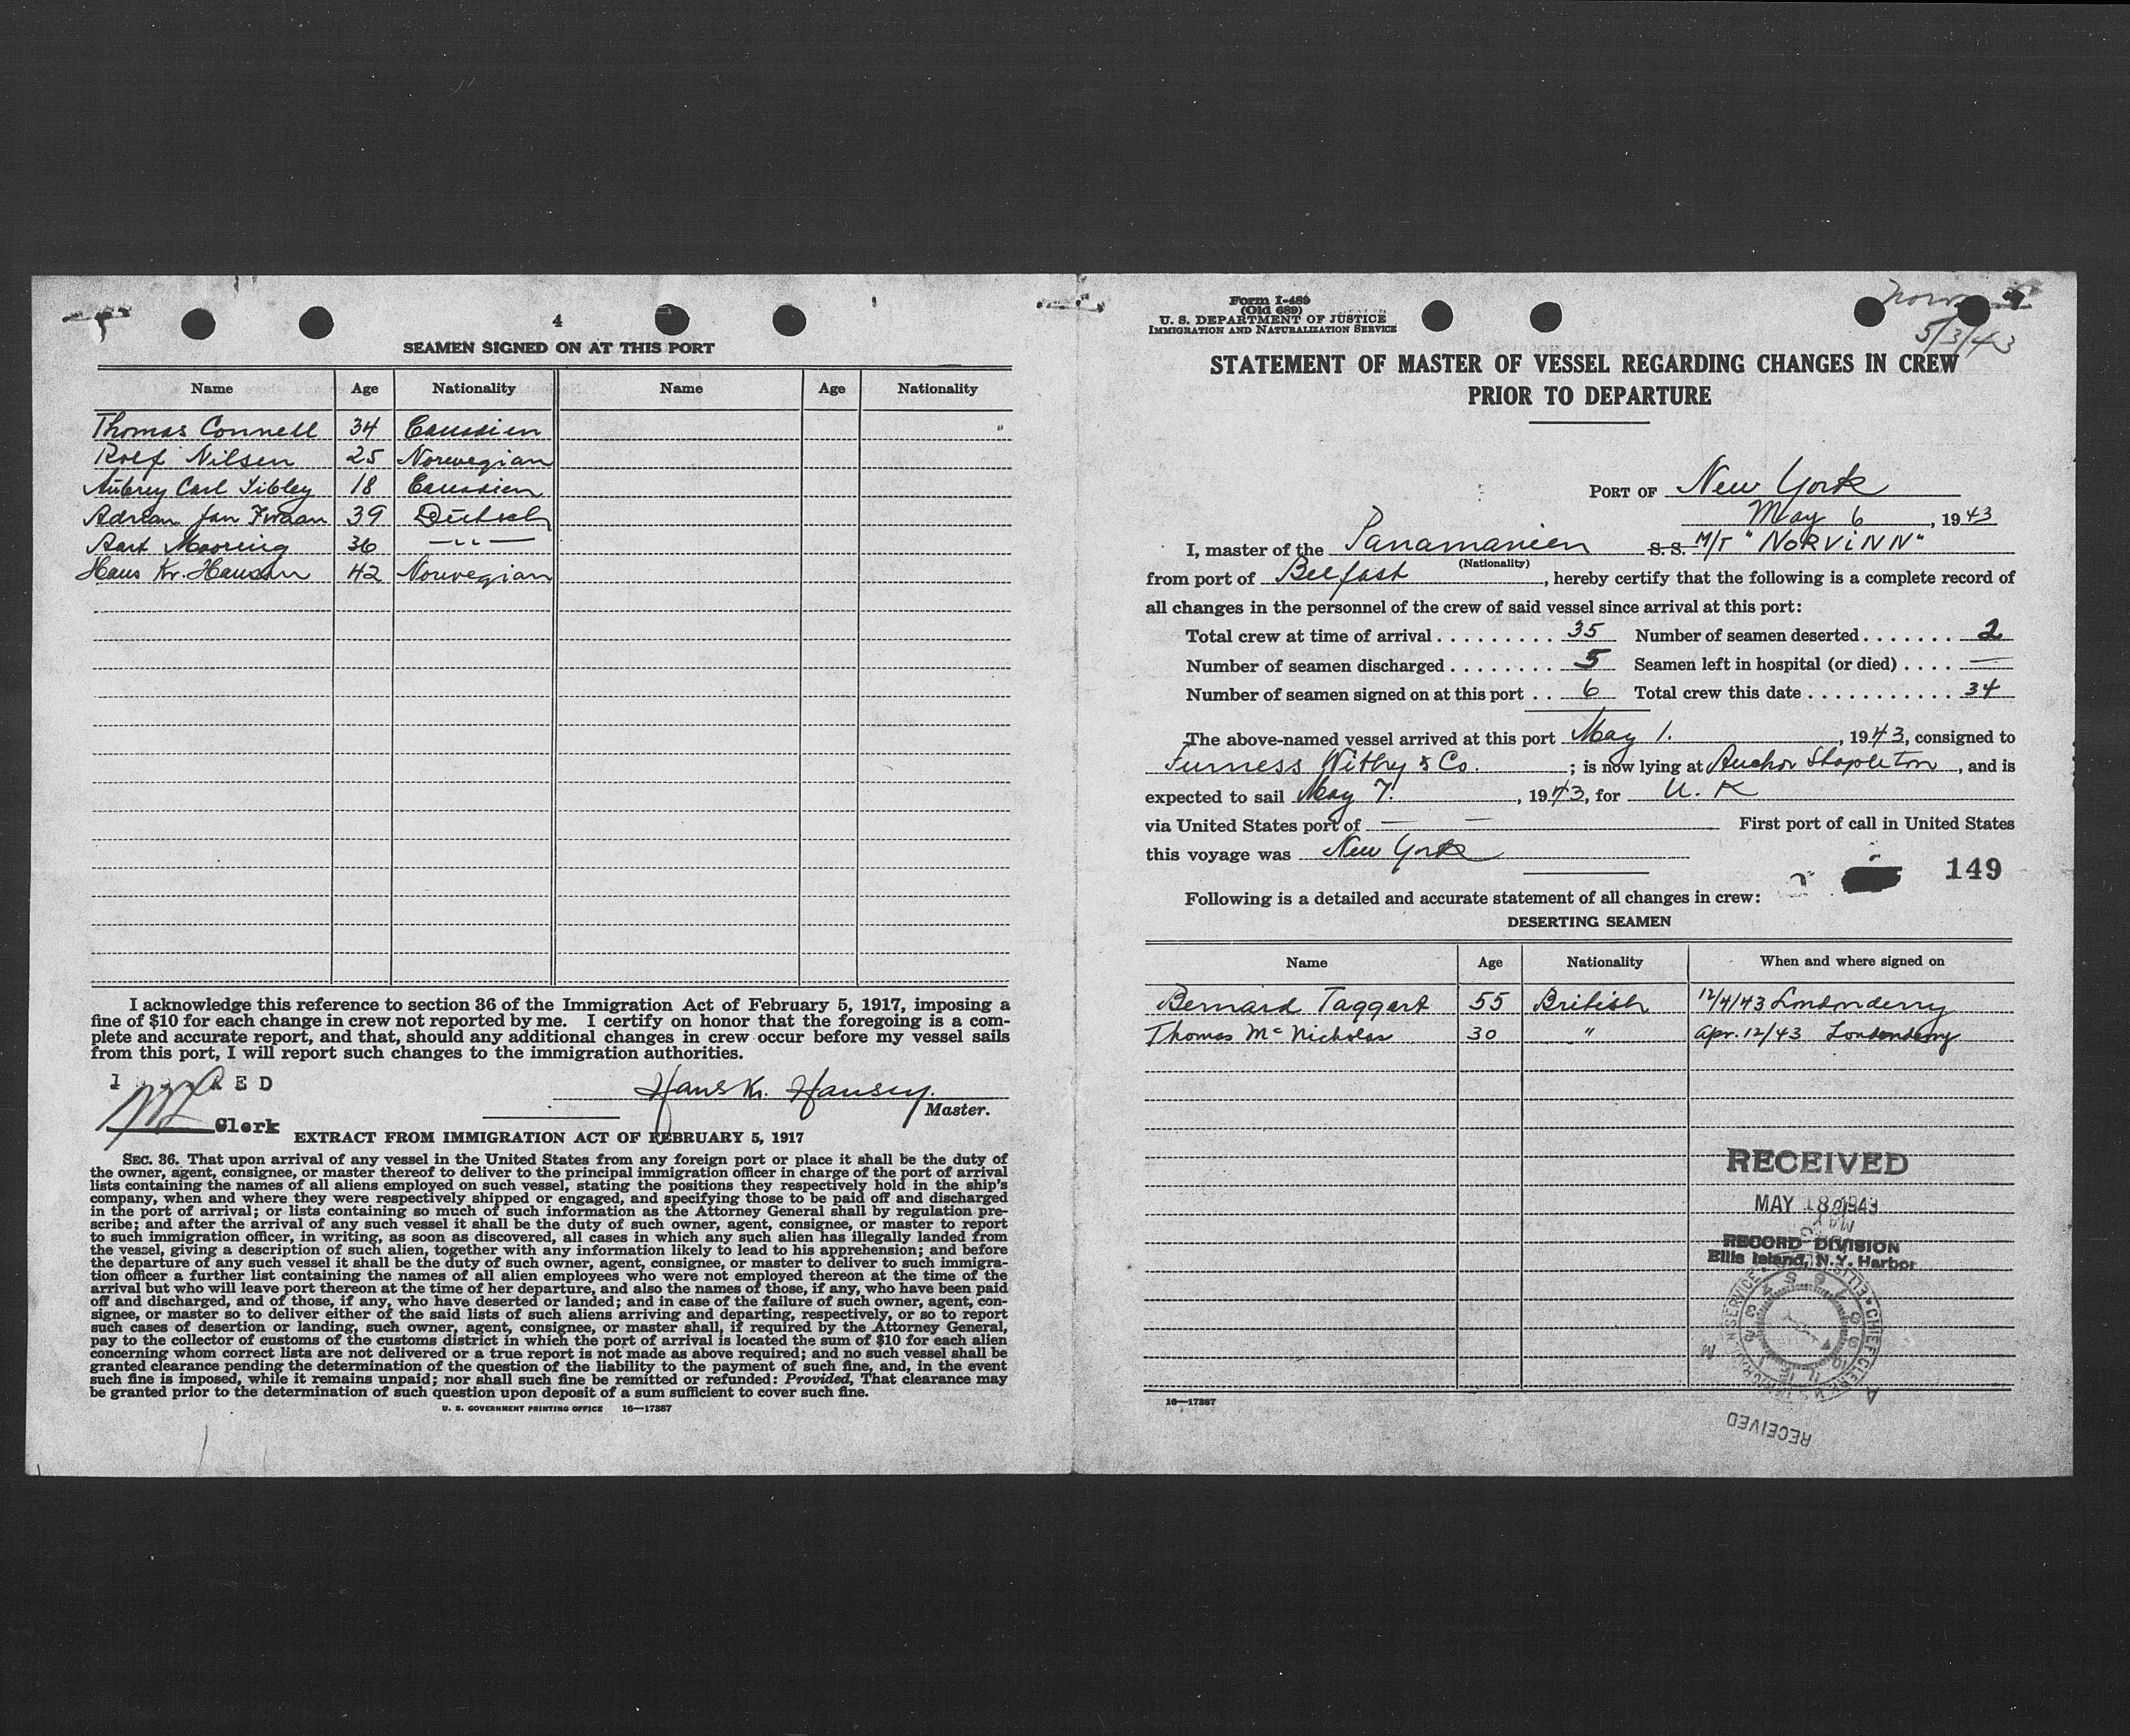 4
SEAMEN SIGNED ON AT THIS PORT
Name Age Nationality Name Age Nationality
Thomas Connell 34 Canadien
Rolf Nilsen 25 Norwegian
Aubrey Carl Sibley 18 Canadien
Adrian Jan Zwaan 39 Dutsch
Aart Mooring 36 —"—
Hans Kr. Hansen 42 Norwegian
I acknowledge this reference to section 36 of the Immigration Act of February 5, 1917, imposing a
fine of $10 for each change in crew not reported by me. I certify on honor that the foregoing is a com-
plete and accurate report, and that, should any additional changes in crew occur before my vessel sails
from this port, I will report such changes to the immigration authorities.
Hans Kr. Hansen.
Master.
Clerk
EXTRACT FROM IMMIGRATION ACT OF FEBRUARY 5, 1917
SEC. 36. That upon arrival of any vessel in the United States from any foreign port or place it shall be the duty of
the owner, agent, consignee, or master thereof to deliver to the principal immigration officer in charge of the port of arrival
lists containing the names of all aliens employed on such vessel, stating the positions they respectively hold in the ship's
company, when and where they were respectively shipped or engaged, and specifying those to be paid off and discharged
in the port of arrival; or lists containing so much of such information as the Attorney General shall by regulation pre-
scribe; and after the arrival of any such vessel it shall be the duty of such owner, agent, consignee, or master to report
to such immigration officer, in writing, as soon as discovered, all cases in which any such alien has illegally landed from
the vessel, giving a description of such alien, together with any information likely to lead to his apprehension; and before
the departure of any such vessel it shall be the duty of such owner, agent, consignee, or master to deliver to such immigra-
tion officer a further list containing the names of all alien employees who were not employed thereon at the time of the
arrival but who will leave port thereon at the time of her departure, and also the names of those, if any, who have been paid
off and discharged, and of those, if any, who have deserted or landed; and in case of the failure of such owner, agent, con-
signee, or master so to deliver either of the said lists of such aliens arriving and departing, respectively, or so to report
such cases of desertion or landing, such owner, agent, consignee, or master shall, if required by the Attorney General,
pay to the collector of customs of the customs district in which the port of arrival is located the sum of $10 for each alien
concerning whom correct lists are not delivered or a true report is not made as above required; and no such vessel shall be
granted clearance pending the determination of the question of the liability to the payment of such fine, and, in the event
such fine is imposed, while it remains unpaid; nor shall such fine be remitted or refunded: Provided, That clearance may
be granted prior to the determination of such question upon deposit of a sum sufficient to cover such fine.
U. S. GOVERNMENT PRINTING OFFICE 16—17387
Form I-489
(Old 689)
U. S. DEPARTMENT OF JUSTICE
IMMIGRATION AND NATURALIZATION SERVICE
5/3/43
STATEMENT OF MASTER OF VESSEL REGARDING CHANGES IN CREW
PRIOR TO DEPARTURE
PORT OF New York
May 6, 1943
I, master of the Panamanien S. S. M/T "NORVINN"
(Nationality)
from port of Belfast, hereby certify that the following is a complete record of
all changes in the personnel of the crew of said vessel since arrival at this port:
Total crew at time of arrival . . . . . . . . . 35 Number of seamen deserted . . . . . . . 2
Number of seamen discharged . . . . . . . . 5 Seamen left in hospital (or died) . . . . —
Number of seamen signed on at this port . . 6 Total crew this date . . . . . . . . . . . . 34
The above-named vessel arrived at this port May 1., 1943, consigned to
Furness Withy & Co. ; is now lying at Anchor Stapleton, and is
expected to sail May 7., 1943, for U. K
via United States port of — — First port of call in United States
this voyage was New York
149
Following is a detailed and accurate statement of all changes in crew:
DESERTING SEAMEN
Name Age Nationality When and where signed on
Bernard Taggart 55 British 12/4/43 Londonderry
Thomas McNicholas 30 " Apr. 12/43 Londonderry
RECEIVED
MAY 18 1943
RECORD DIVISION
Ellis Island, N.Y. Harbor
16—17387
RECEIVED